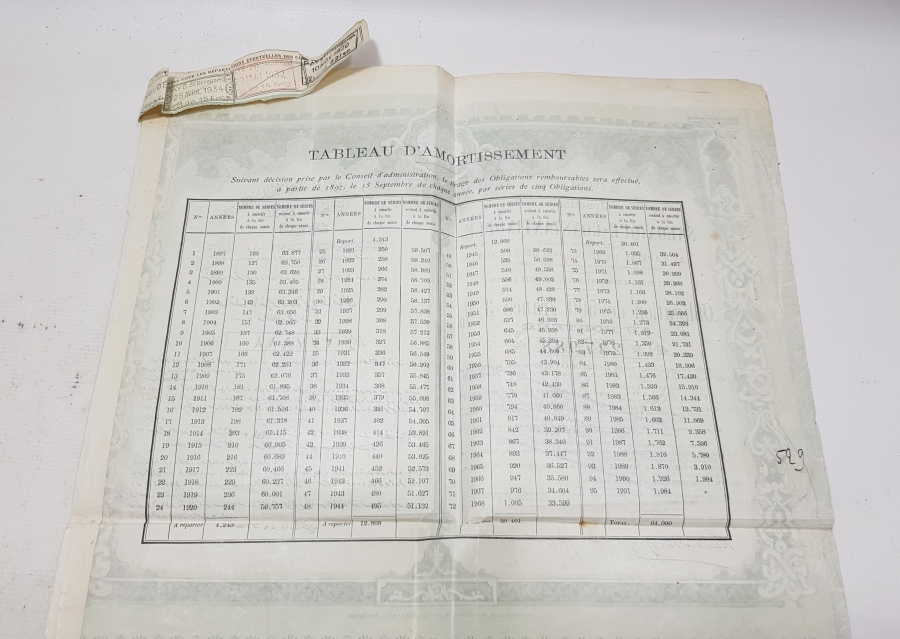 POUR LES RÉPARTITIONS ÉVENTUELLES DES
25 AVRIL 1934
TABLEAU D'AMORTISSEMENT
Suivant décision prise par le Conseil d'administration, le tirage des Obligations remboursables sera effectué,
à partir de 1897, le 15 Septembre de chaque année, par séries de cinq Obligations.
Nos ANNÉES NOMBRE DE SÉRIES à amortir à la fin de chaque année NOMBRE DE SÉRIES restant à amortir à la fin de chaque année Nos ANNÉES NOMBRE DE SÉRIES à amortir à la fin de chaque année NOMBRE DE SÉRIES restant à amortir à la fin de chaque année Nos ANNÉES NOMBRE DE SÉRIES à amortir à la fin de chaque année NOMBRE DE SÉRIES restant à amortir à la fin de chaque année Nos ANNÉES NOMBRE DE SÉRIES à amortir à la fin de chaque année NOMBRE DE SÉRIES restant à amortir à la fin de chaque année
Report. 4.243 Report. 12.808 Report. 30.401
1 1897 123 63.877 25 1921 250 59.507 49 1945 509 50.623 73 1969 1.035 32.564
2 1898 127 63.750 26 1922 258 59.249 50 1946 525 50.098 74 1970 1.067 31.497
3 1899 130 63.620 27 1923 266 58.983 51 1947 540 49.558 75 1971 1.098 30.399
4 1900 135 63.485 28 1924 274 58.709 52 1948 556 49.002 76 1972 1.131 29.268
5 1901 139 63.346 29 1925 282 58.427 53 1949 574 48.428 77 1973 1.166 28.102
6 1902 143 63.203 30 1926 290 58.137 54 1950 590 47.838 78 1974 1.200 26.902
7 1903 147 63.056 31 1927 299 57.838 55 1951 608 47.230 79 1975 1.236 25.666
8 1904 151 62.905 32 1928 308 57.530 56 1952 627 46.603 80 1976 1.273 24.393
9 1905 157 62.748 33 1929 318 57.212 57 1953 645 45.958 81 1977 1.312 23.081
10 1906 160 62.588 34 1930 327 56.885 58 1954 664 45.294 82 1978 1.350 21.731
11 1907 166 62.422 35 1931 336 56.549 59 1955 685 44.609 83 1979 1.392 20.339
12 1908 171 62.251 36 1932 347 56.202 60 1956 705 43.904 84 1980 1.433 18.906
13 1909 175 62.076 37 1933 357 55.845 61 1957 726 43.178 85 1981 1.476 17.430
14 1910 181 61.895 38 1934 368 55.477 62 1958 748 42.430 86 1982 1.520 15.910
15 1911 187 61.708 39 1935 379 55.098 63 1959 770 41.660 87 1983 1.566 14.344
16 1912 192 61.516 40 1936 391 54.707 64 1960 794 40.866 88 1984 1.613 12.731
17 1913 198 61.318 41 1937 402 54.305 65 1961 817 40.049 89 1985 1.662 11.069
18 1914 203 61.115 42 1938 414 53.891 66 1962 842 39.207 90 1986 1.711 9.358
19 1915 210 60.905 43 1939 426 53.465 67 1963 867 38.340 91 1987 1.762 7.596
20 1916 216 60.689 44 1940 440 53.025 68 1964 893 37.447 92 1988 1.816 5.780
21 1917 223 60.466 45 1941 452 52.573 69 1965 920 36.527 93 1989 1.870 3.910
22 1918 229 60.237 46 1942 466 52.107 70 1966 947 35.580 94 1990 1.926 1.984
23 1919 236 60.001 47 1943 480 51.627 71 1967 976 34.604 95 1991 1.984 »
24 1920 244 59.757 48 1944 495 51.132 72 1968 1.005 33.599
A reporter 4.243 A reporter 12.868 30.401 TOTAL 64.000
529